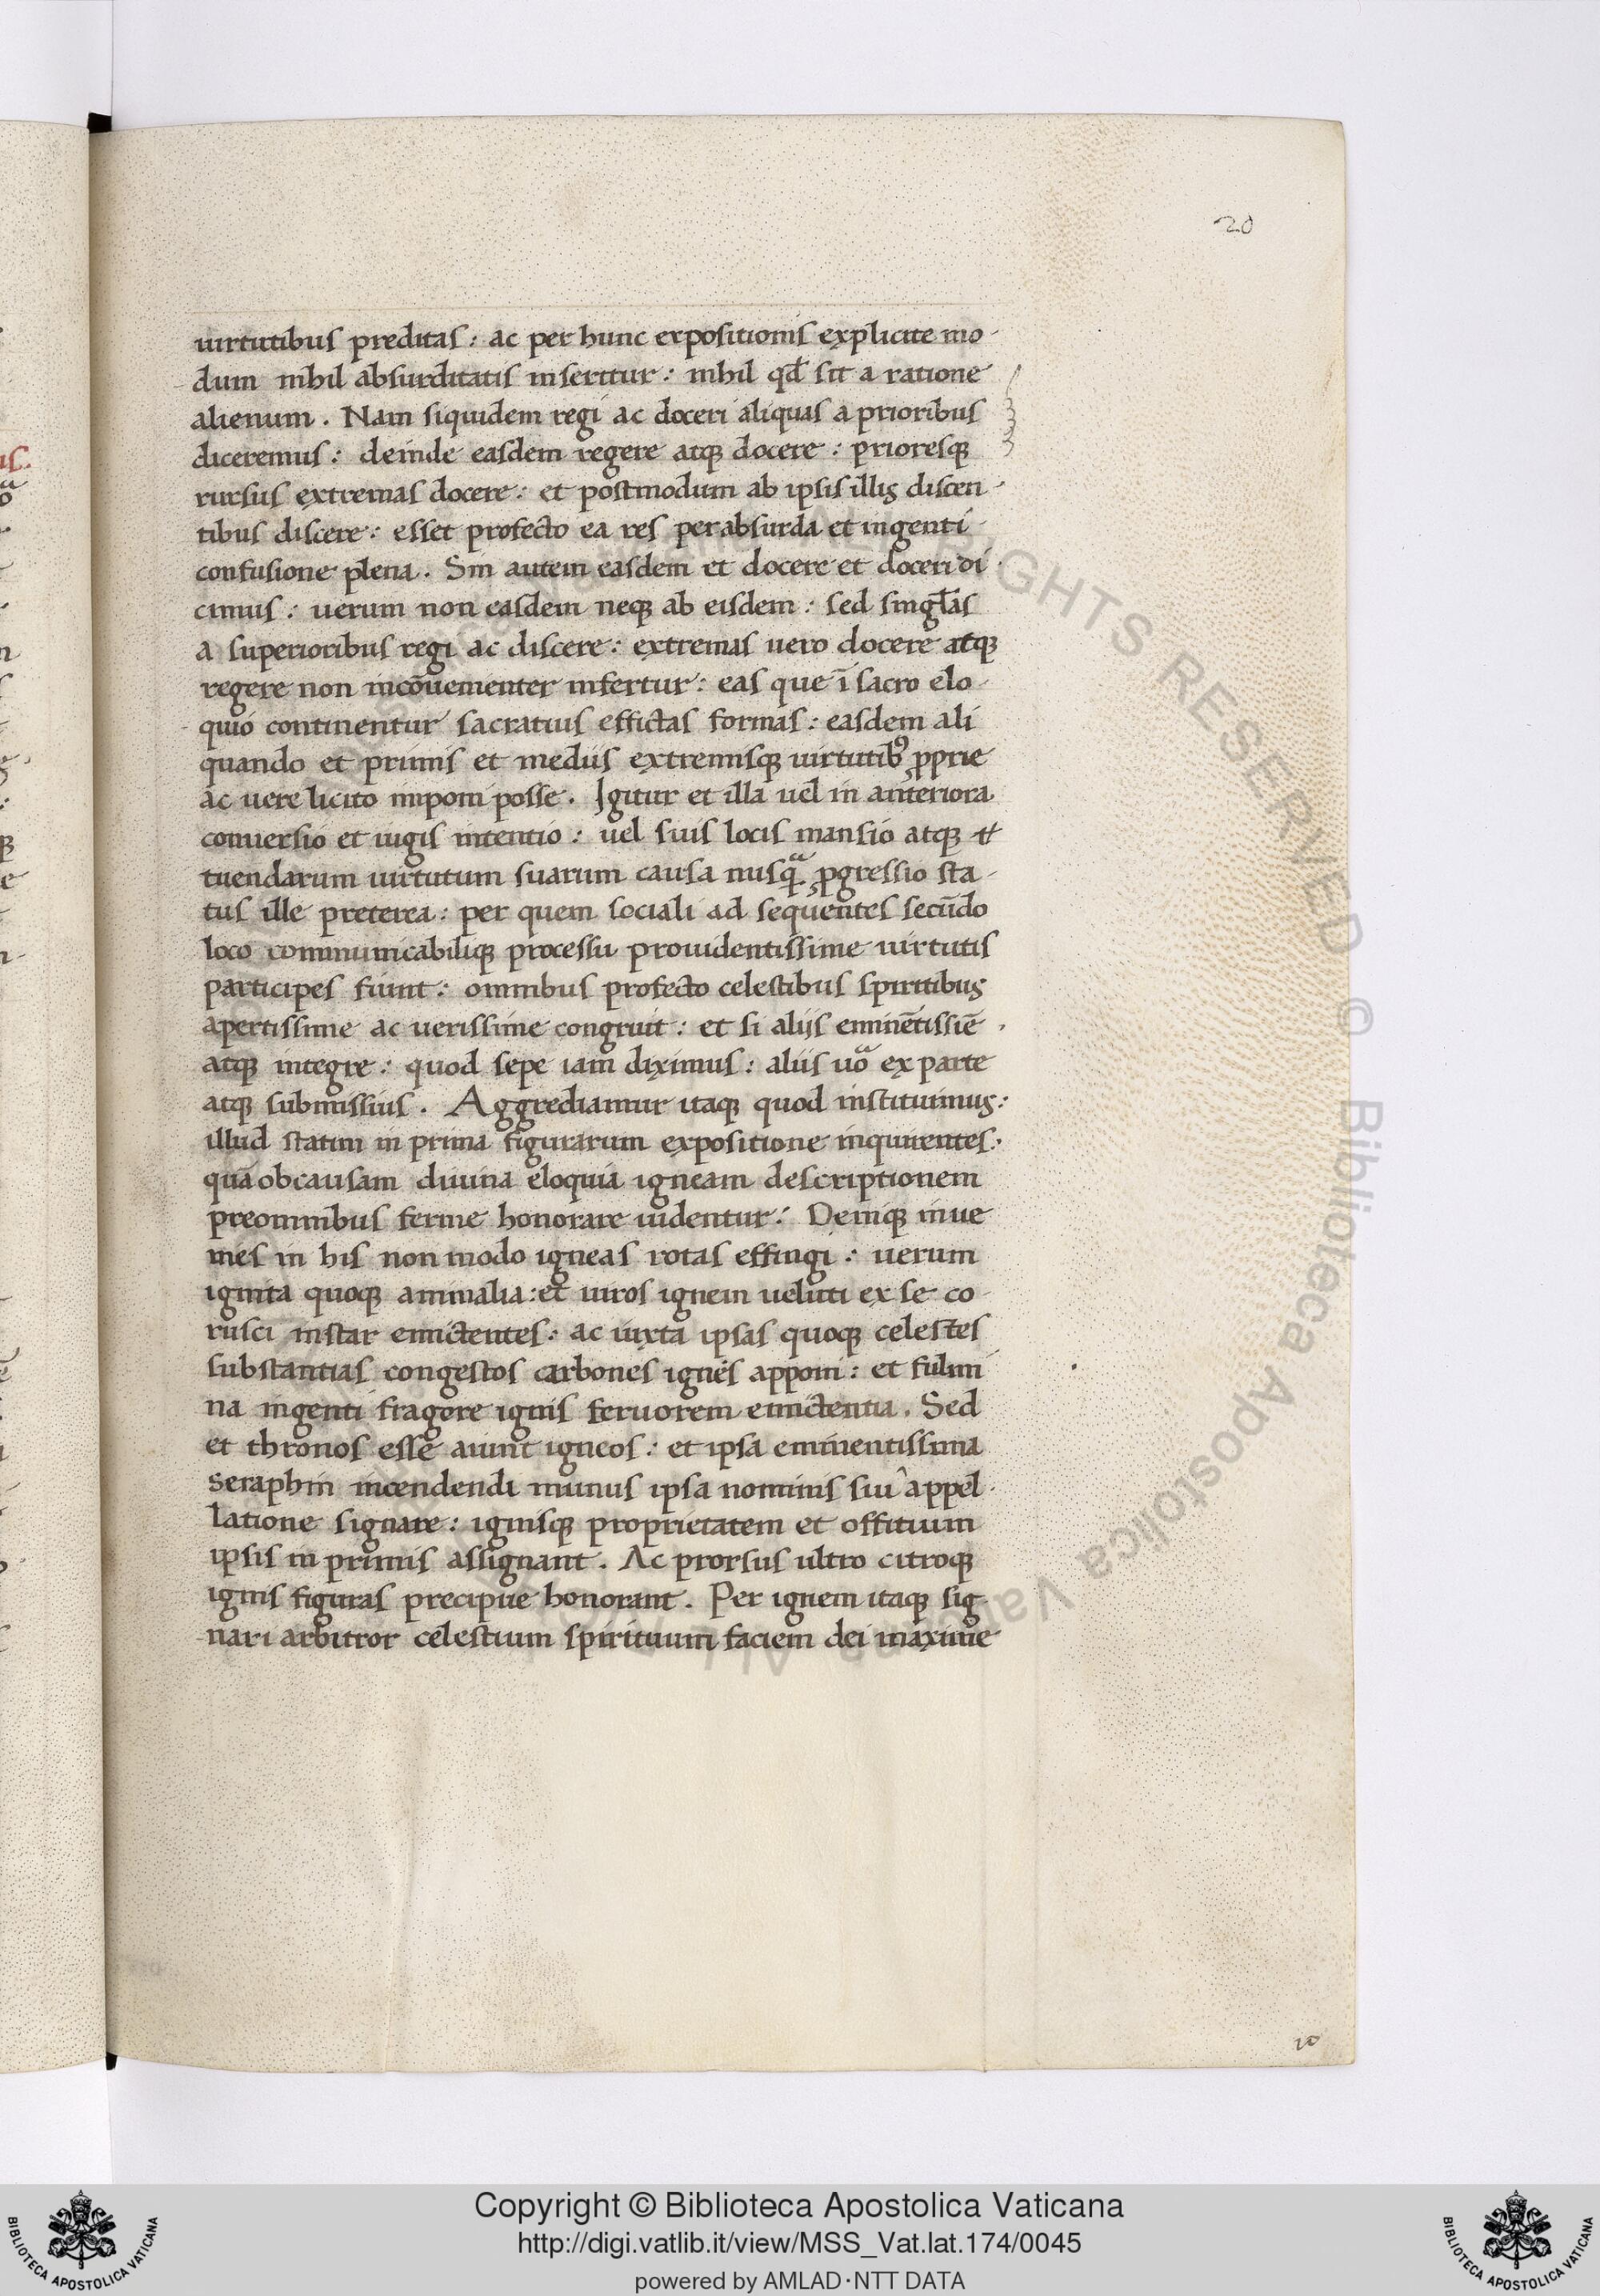 20
uirtutibus preditas: ac per hunc expositionis explicite mo-
dum nihil absurditatis inseritur: nihil qd̄ sit a ratione
alienum. Nam siquidem regi ac doceri aliquas a prioribus
diceremus: deinde easdem regere atqꝫ docere: prioresqꝫ
rursus extremas docere: et postmodum ab ipsis illis discen-
tibus discere: esset profecto ea res perabsurda et ingenti
confusione plena. Sin autem easdem et docere et doceri di-
cimus: uerum non easdem neqꝫ ab eisdem: sed singl̄as
a superioribus regi ac discere: extremas uero docere atqꝫ
regere non incōuenienter infertur: eas que ī sacro elo-
quio continentur sacratius effictas formas: easdem ali
quando et primis et mediis extremisqꝫ uirtutibꝰ ꝓprie
ac uere licito imponi posse. Igitur et illa uel in anteriora
conuersio et iugis intentio: uel suis locis mansio atqꝫ
tuendarum uirtutum suarum causa nusqᷓ ꝓgressio sta-
tus ille preterea: per quem sociali ad sequentes secūdo
loco communicabiliqꝫ processu prouidentissime uirtutis
participes fiunt: omnibus profecto celestibus spiritibus
apertissime ac uerissime congruit: et si alijs eminētissiē
atqꝫ integre: quod sepe iam diximus: aliis uo ex parte
atqꝫ submissius. Aggrediamur itaqꝫ quod instituimus:
illud statim in prima figurarum expositione inquirentes:
qua ob causam diuina eloquia igneam descriptionem
preomnibus ferme honorare uidentur: Deniqꝫ inue
nies in his non modo igneas rotas effingi: uerum
ignita quoqꝫ animalia: et uiros ignem ueluti ex se co-
rusci instar emictentes: ac iuxta ipsas quoqꝫ celestes
substantias congestos carbones ignis apponi: et fulmi
na ingenti fragore ignis feruorem emictentia. Sed
et thronos esse aiunt igneos: et ipsa eminentissima
seraphin incendendi munus ipsa nominis sui appel-
latione signare: ignisqꝫ proprietatem et offitium
ipsis in primis assignant. Ac prorsus ultro citroqꝫ
ignis figuras precipue honorant. Per ignem itaqꝫ sig-
nari arbitror celestium spirituum faciem dei maxime
Copyright © Biblioteca Apostolica Vaticana
http://digi.vatlib.it/view/MSS_Vat.lat.174/0045
powered by AMLAD·NTT DATA
BIBLIOTECA APOSTOLICA VATICANA
BIBLIOTECA APOSTOLICA VATICANA